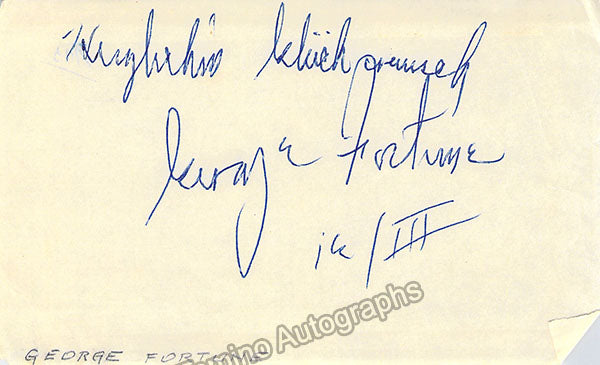 Herzlichen Glückwunsch
George Fortune
/III
GEORGE FORTUNE
Tamino Autographs